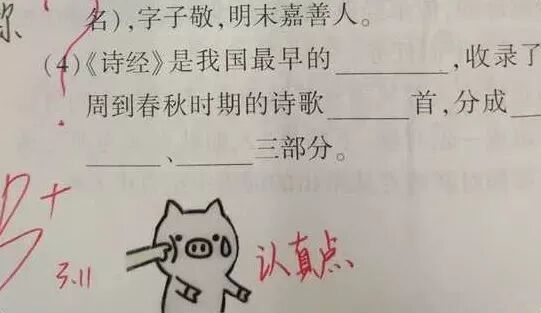 名),字子敬,明末嘉善人。
(4)《诗经》是我国最早的________,收录了
周到春秋时期的诗歌______首,分成__
_____、_____三部分。
3.11
认真点